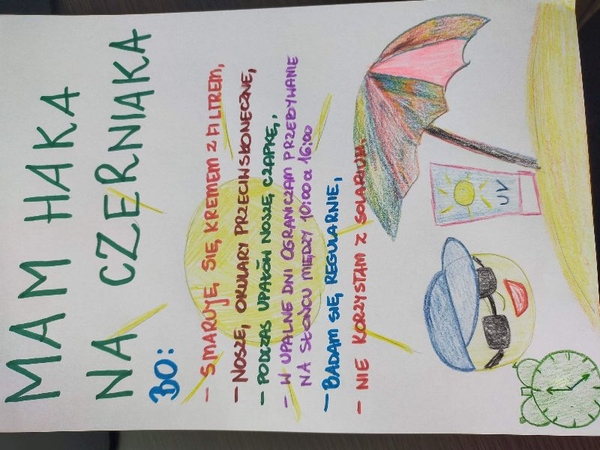 MAM HAKA
NA CZERNIAKA
BO:
- SMARUJĘ SIĘ KREMEM Z FILTREM,
- NOSZĘ OKULARY PRZECIWSŁONECZNE,
- PODCZAS UPAŁÓW NOSZĘ CZAPKĘ,
- W UPALNE DNI OGRANICZAM PRZEBYWANIE
NA SŁOŃCU MIĘDZY 10:00 a 16:00
- BADAM SIĘ REGULARNIE,
- NIE KORZYSTAM Z SOLARIUM.
UV